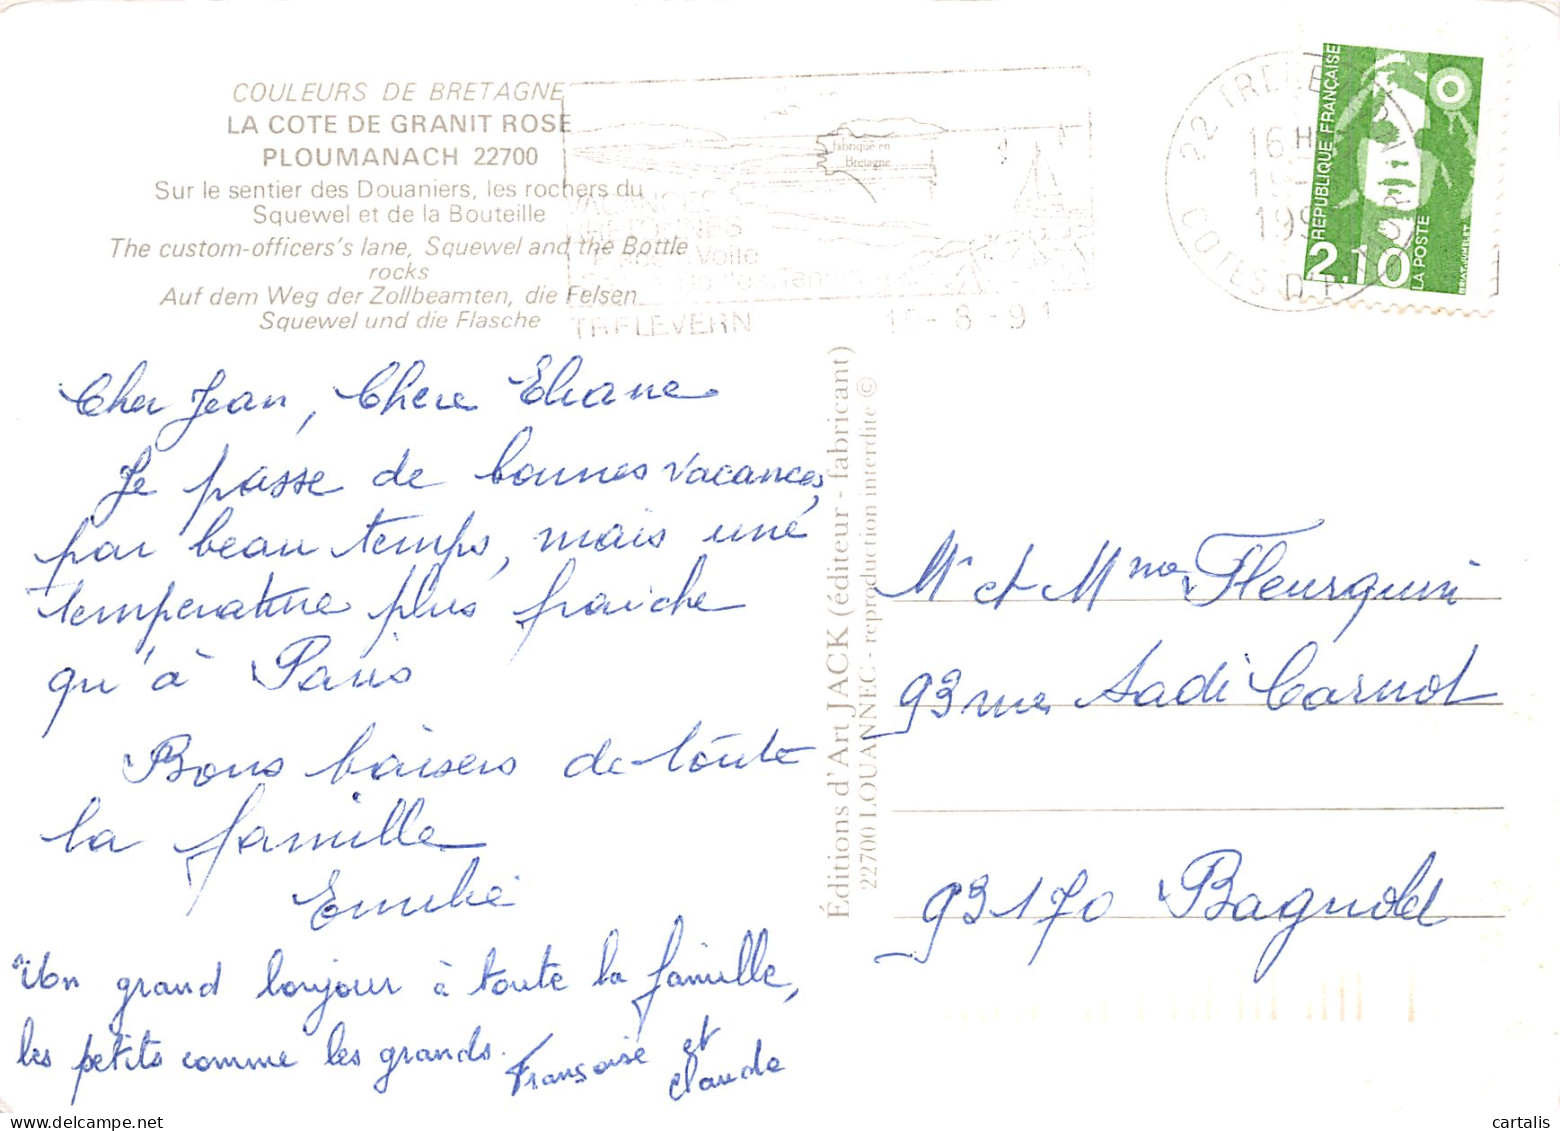 COULEURS DE BRETAGNE
LA COTE DE GRANIT ROSE
PLOUMANACH 22700
Sur le sentier des Douaniers, les rochers du
Squewel et de la Bouteille
The custom-officers's lane, Squewel and the Bottle
rocks
Auf dem Weg der Zollbeamten, die Felsen
Squewel und die Flasche
fabriqué en
Bretagne
Voile
TRELEVERN
- 8 - 91
22
16 H
COTES D'
REPUBLIQUE FRANÇAISE
2.10
LA POSTE
Cher Jean, Chère Eliane
Je passe de bonnes vacances,
par beau temps, mais une
température plus fraiche
qu'à Paris
Bons baisers de toute
la famille
Emilie
Un grand bonjour à toute la famille,
les petits comme les grands.
Françoise et
Claude
Éditions d'Art JACK (éditeur - fabricant)
22700 LOUANNEC - reproduction interdite ©
Mr et Mme Fleurquin
93 rue Sadi Carnot
93170 Bagnolet
cartalis